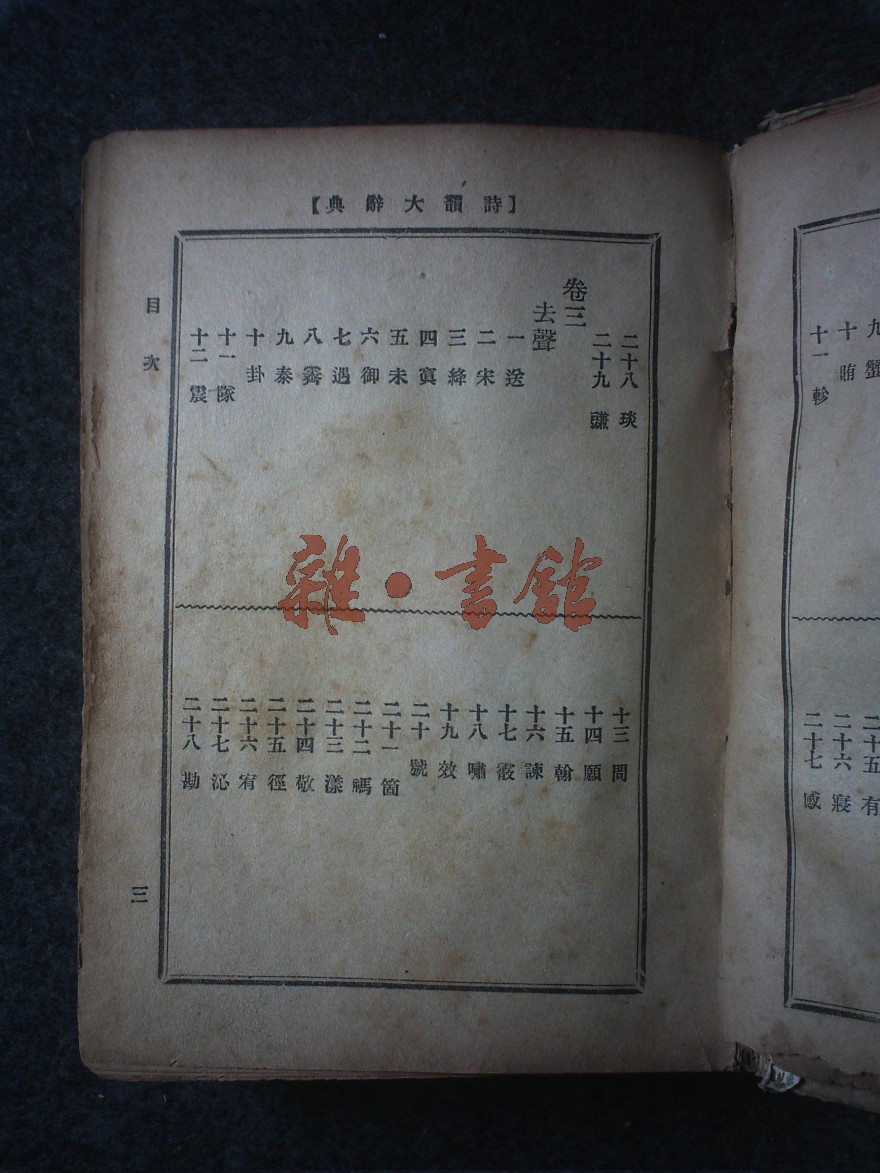 九 蟹
十 賄
十一 軫
二十五 有
二十六 寢
二十七 感
【詩韻大辭典】
二十八 琰
二十九 豏
卷三
去聲
一 送
二 宋
三 絳
四 寘
五 未
六 御
七 遇
八 霽
九 泰
十 卦
十一 隊
十二 震
十三 問
十四 願
十五 翰
十六 諫
十七 霰
十八 嘯
十九 效
二十 號
二十一 箇
二十二 禡
二十三 漾
二十四 敬
二十五 徑
二十六 宥
二十七 沁
二十八 勘
目次
三
雜·書館